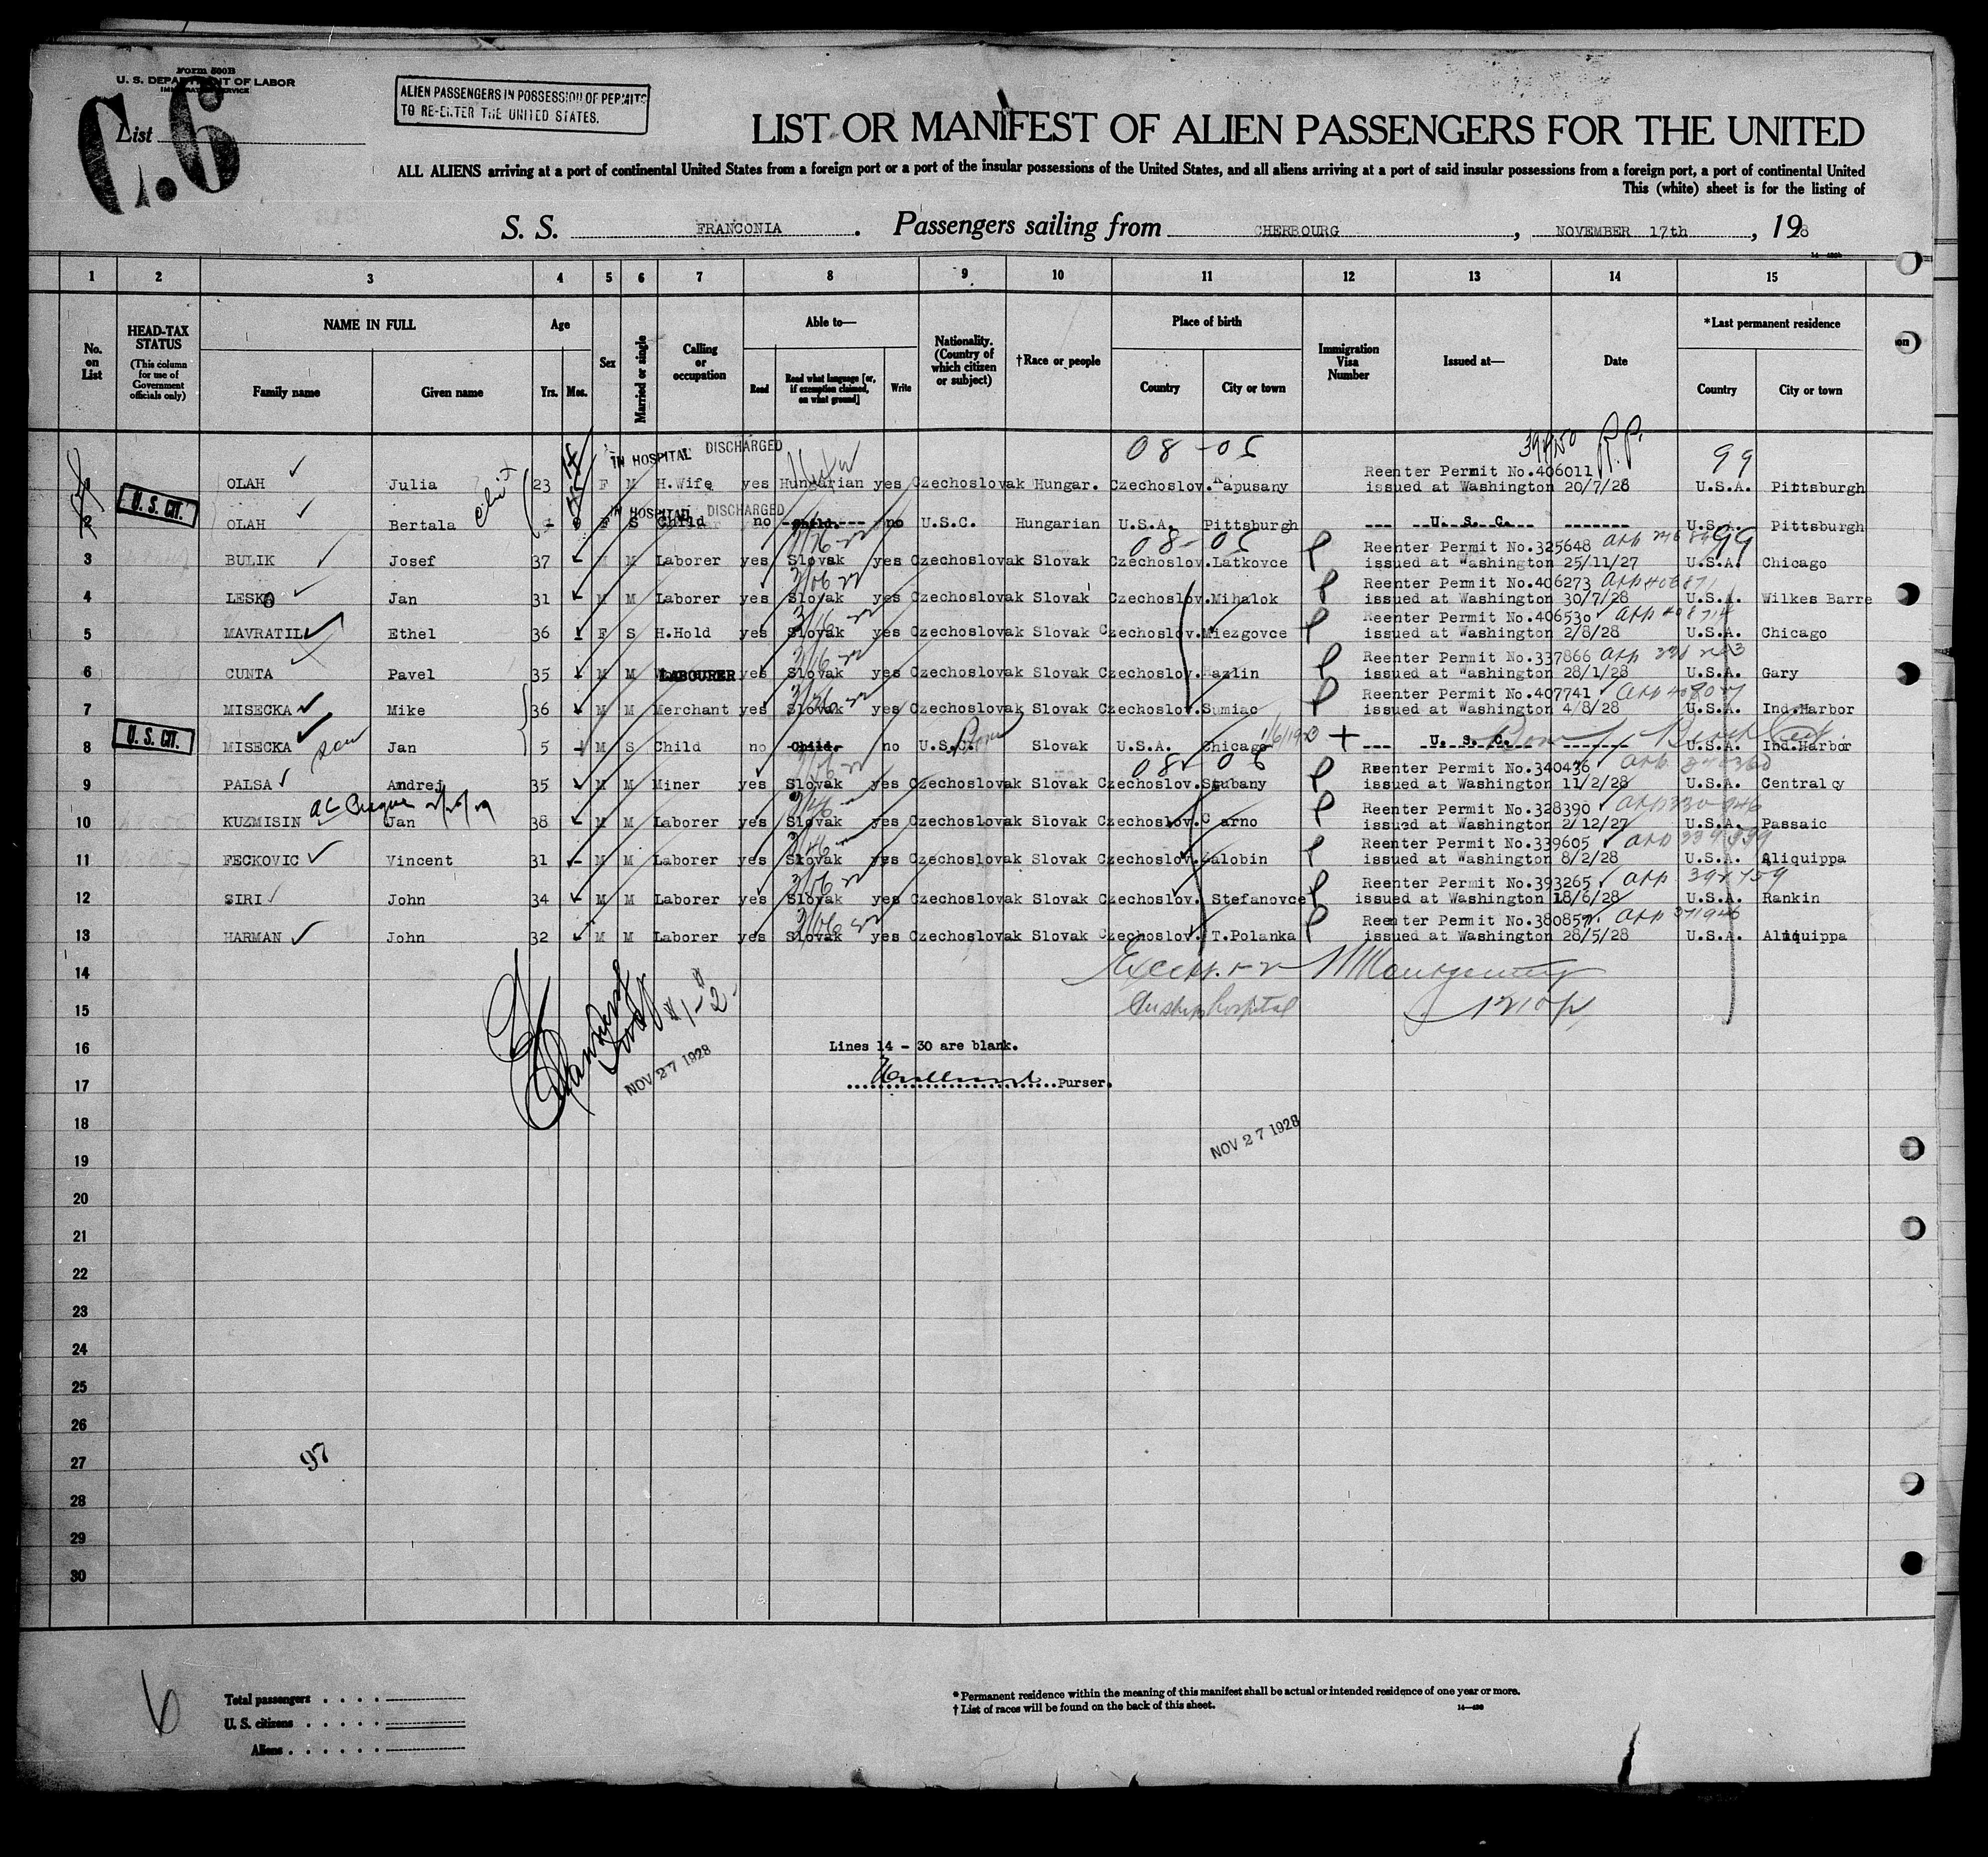 Form 500B
U. S. DEPARTMENT OF LABOR
IMMIGRATION SERVICE
List
C.6
ALIEN PASSENGERS IN POSSESSION OF PERMITS
TO RE-ENTER THE UNITED STATES.
LIST OR MANIFEST OF ALIEN PASSENGERS FOR THE UNITED
ALL ALIENS arriving at a port of continental United States from a foreign port or a port of the insular possessions of the United States, and all aliens arriving at a port of said insular possessions from a foreign port, a port of continental United
This (white) sheet is for the listing of
S. S. FRANCONIA. Passengers sailing from CHERBOURG, NOVEMBER 17th, 1928
1 2 3 4 5 6 7 8 9 10 11 12 13 14 15
No. on List
HEAD-TAX STATUS
(This column for use of Government officials only)
NAME IN FULL
Family name Given name
Age
Yrs. Mos.
Sex
Married or single
Calling or occupation
Able to—
Read
Read what language [or, if exemption claimed, on what ground]
Write
Nationality. (Country of which citizen or subject)
†Race or people
Place of birth
Country City or town
Immigration Visa Number
Issued at—
Date
*Last permanent residence
Country City or town
IN HOSPITAL DISCHARGED 08-05 R.P. 99
1 OLAH Julia 23 F M H.Wife yes Hungarian yes Czechoslovak Hungar. Czechoslov. Kapusany Reenter Permit No.406011 issued at Washington 20/7/28 U.S.A. Pittsburgh
U.S. CIT. IN HOSPITAL DISCHARGED
2 OLAH Bertala - F S Child no Child. no U.S.C. Hungarian U.S.A. Pittsburgh --- U.S.C. ------- U.S.A. Pittsburgh
08-05 99
3 BULIK Josef 37 M Laborer yes Slovak yes Czechoslovak Slovak Czechoslov. Latkovce Reenter Permit No.325648 issued at Washington 25/11/27 U.S.A. Chicago
4 LESKO Jan 31 M M Laborer yes Slovak yes Czechoslovak Slovak Czechoslov. Mihalok Reenter Permit No.406273 issued at Washington 30/7/28 U.S.A. Wilkes Barre
5 MAVRATIL Ethel 36 F S H.Hold yes Slovak yes Czechoslovak Slovak Czechoslov. Miezgovce Reenter Permit No.406530 issued at Washington 2/8/28 U.S.A. Chicago
6 CUNTA Pavel 35 M M LABOURER yes Slovak yes Czechoslovak Slovak Czechoslov. Hazlin Reenter Permit No.337866 issued at Washington 28/1/28 U.S.A. Gary
7 MISECKA Mike 36 M M Merchant yes Slovak yes Czechoslovak Slovak Czechoslov. Sumiac Reenter Permit No.407741 issued at Washington 4/8/28 U.S.A. Ind.Harbor
U.S. CIT.
8 MISECKA son Jan 5 M S Child no Child. no U.S.C. Slovak U.S.A. Chicago --- U.S.C. ------- U.S.A. Ind.Harbor
9 PALSA Andrej 35 M M Miner yes Slovak yes Czechoslovak Slovak Czechoslov. Stubany Reenter Permit No.340436 issued at Washington 11/2/28 U.S.A. Central cy
10 KUZMISIN Jan 38 M M Laborer yes Slovak yes Czechoslovak Slovak Czechoslov. C arno Reenter Permit No.328390 issued at Washington 2/12/27 U.S.A. Passaic
11 FECKOVIC Vincent 31 - M M Laborer yes Slovak yes Czechoslovak Slovak Czechoslov. Kalobin Reenter Permit No.339605 issued at Washington 8/2/28 U.S.A. Aliquippa
12 SIRI John 34 M M Laborer yes Slovak yes Czechoslovak Slovak Czechoslov. Stefanovce Reenter Permit No.393265 issued at Washington 18/6/28 U.S.A. Rankin
13 HARMAN John 32 M M Laborer yes Slovak yes Czechoslovak Slovak Czechoslov. T.Polanka Reenter Permit No.380857 issued at Washington 28/5/28 U.S.A. Aliquippa
14
15
16 Lines 14 - 30 are blank.
NOV 27 1928
17 Purser.
18
NOV 27 1928
19
20
21
22
23
24
25
26
97
27
28
29
30
6
Total passengers
U. S. citizens
Aliens
* Permanent residence within the meaning of this manifest shall be actual or intended residence of one year or more.
† List of races will be found on the back of this sheet.